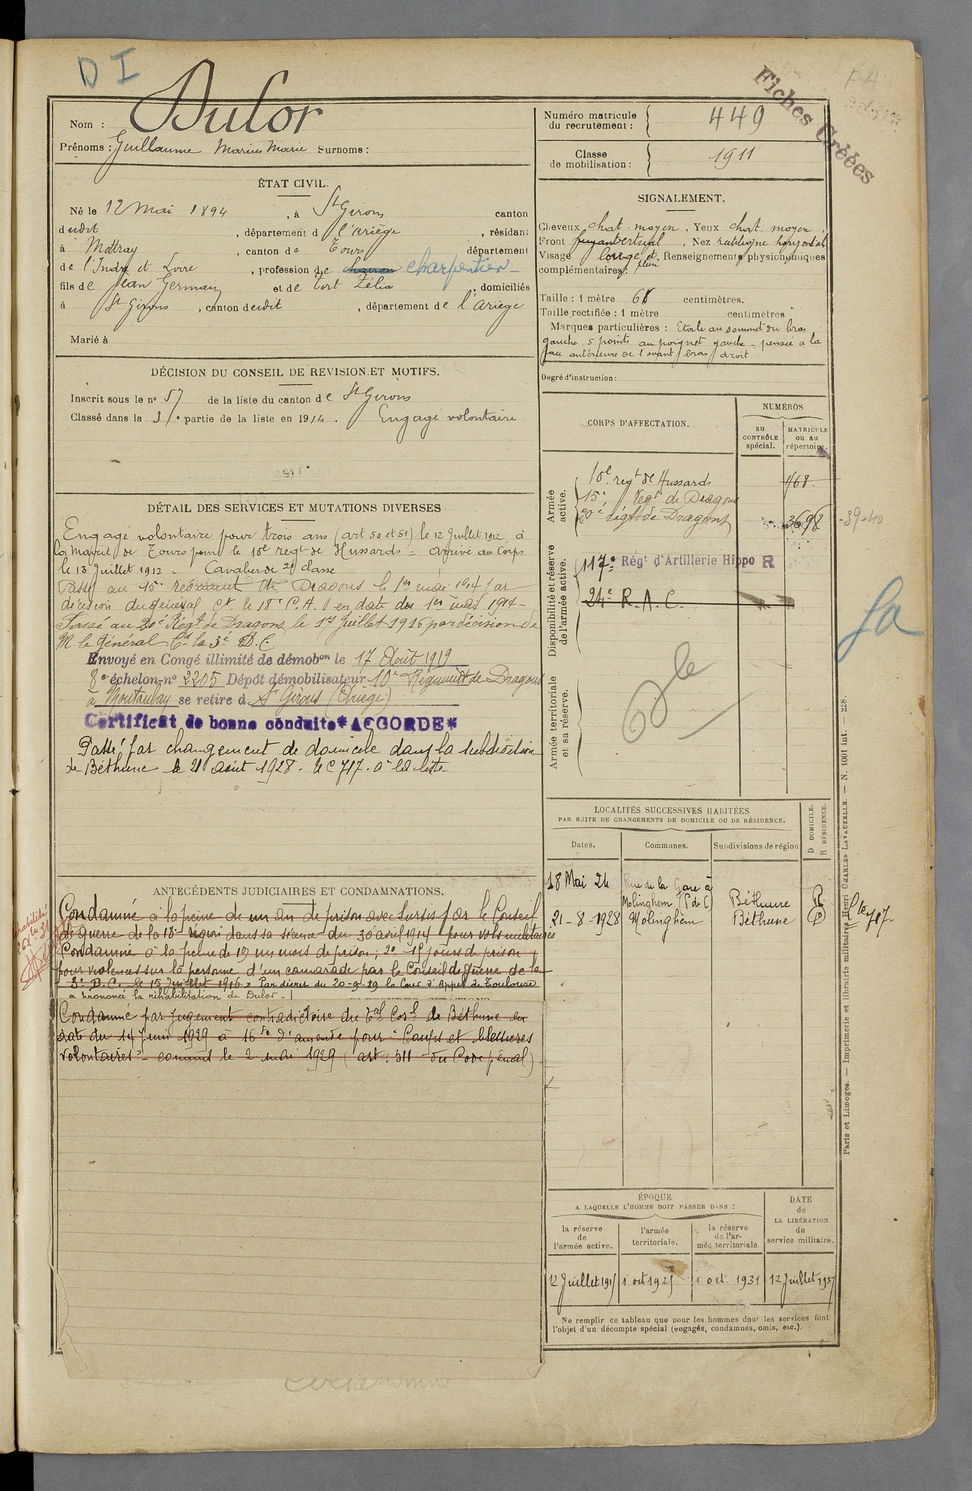 D I
Fiches Créées
Nom : Dulor
Prénoms : Guillaume Marius Marie Surnoms :
Numéro matricule du recrutement : 449
Classe de mobilisation : 1911
ÉTAT CIVIL.
Né le 12 Mai 1894, à St Girons canton
dudit, département d l'Ariège, résidant
à Mettray, canton de Tours département
de l'Indre et Loire, profession de charron charpentier
fils de Jean Germain et de Tort Zélia, domiciliés
à St Girons, canton dudit, département de l'Ariège
Marié à
SIGNALEMENT.
Cheveux chat. moyen. Yeux chat. moyen.
Front fuyant vertical, Nez rectiligne horizontal
Visage long et plein, Renseignements physionomiques
complémentaires :
Taille : 1 mètre 68 centimètres.
Taille rectifiée : 1 mètre centimètres
Marques particulières : Etoile au sommet du bras
gauche 5 points au poignet gauche - pensée à la
face antérieure de l'avant bras droit
Degré d'instruction :
DÉCISION DU CONSEIL DE REVISION ET MOTIFS.
Inscrit sous le n° 57 de la liste du canton de St Girons
Classé dans la 3e partie de la liste en 1914. Engagé volontaire
DÉTAIL DES SERVICES ET MUTATIONS DIVERSES
Engagé volontaire pour trois ans (art 50 et 51) le 12 Juillet 1912, à
la Mairie de Tours pour le 10e regt de Hussards - arrivé au Corps
le 13 Juillet 1912 - Cavalier de 2e classe
Passé au 15e régiment de Dragons le 1er mai 1914 par
décision du général Ct le 18e C.A. en date du 1er mars 1914 -
Passé au 20e Régt de Dragons, le 1er Juillet 1915 par décision de
M le Général Ct la 3e D.C
Envoyé en Congé illimité de démobon le 17 Août 1919
8e échelon, n° 2205 Dépôt démobilisateur 10e Régiment de Dragons
à Montauban se retire d St Girons (Ariège)
Certificat de bonne conduite *ACCORDÉ*
Passé par changement de domicile dans la subdivision
de Béthune le 21 août 1928. Le 717 à la liste
ANTÉCÉDENTS JUDICIAIRES ET CONDAMNATIONS.
Condamné à la peine de un an de prison avec sursis par le Conseil
de guerre de la 18e région dans sa séance du 30 avril 1914 pour vols militaires
Condamné à la peine de 1° un mois de prison, 2° 15 jours de prison
pour violences sur la personne d'un camarade par le Conseil de guerre de la
3e D.C. le 15 Juillet 1916. Par décret du 20-9-29 la Cour d'Appel de Toulouse
a prononcé la réhabilitation de Dulor -
Condamné par jugement contradictoire du Tal Corel de Béthune en
date du 14 Juin 1929 à 16 Fr d'amende pour "Coups et blessures
volontaires" - commis le 2 mai 1929 (art. 311 du Code pénal)
CORPS D'AFFECTATION.
NUMÉROS
AU CONTRÔLE spécial.
MATRICULE OU AU répertoire.
Armée active.
10e regt de Hussards 468
15e Regt de Dragons
20e régt de Dragons 3698
39-40
Disponibilité et réserve de l'armée active.
117e Régt d'Artillerie Hippo R
24e R.A.C.
Armée territoriale et sa réserve.
LOCALITÉS SUCCESSIVES HABITÉES
PAR SUITE DE CHANGEMENTS DE DOMICILE OU DE RÉSIDENCE.
Dates. Communes. Subdivisions de région D DOMICILE. R RÉSIDENCE.
18 Mai 24 Rue de la Gare à Molinghem (P de C) Béthune R
21-8-1928 Molinghem Béthune D
Le 717
ÉPOQUE
A LAQUELLE L'HOMME DOIT PASSER DANS :
la réserve de l'armée active.
l'armée territoriale.
la réserve de l'armée territoriale
DATE de LA LIBÉRATION du service militaire.
12 Juillet 1915 1 oct 1925 1 oct 1931 12 Juillet 1937
Ne remplir ce tableau que pour les hommes dont les services font
l'objet d'un décompte spécial (engagés, condamnés, omis, etc.).
Paris et Limoges. — Imprimerie et librairie militaires Henri CHARLES-LAVAUZELLE. — N. 1001 int. — 228.